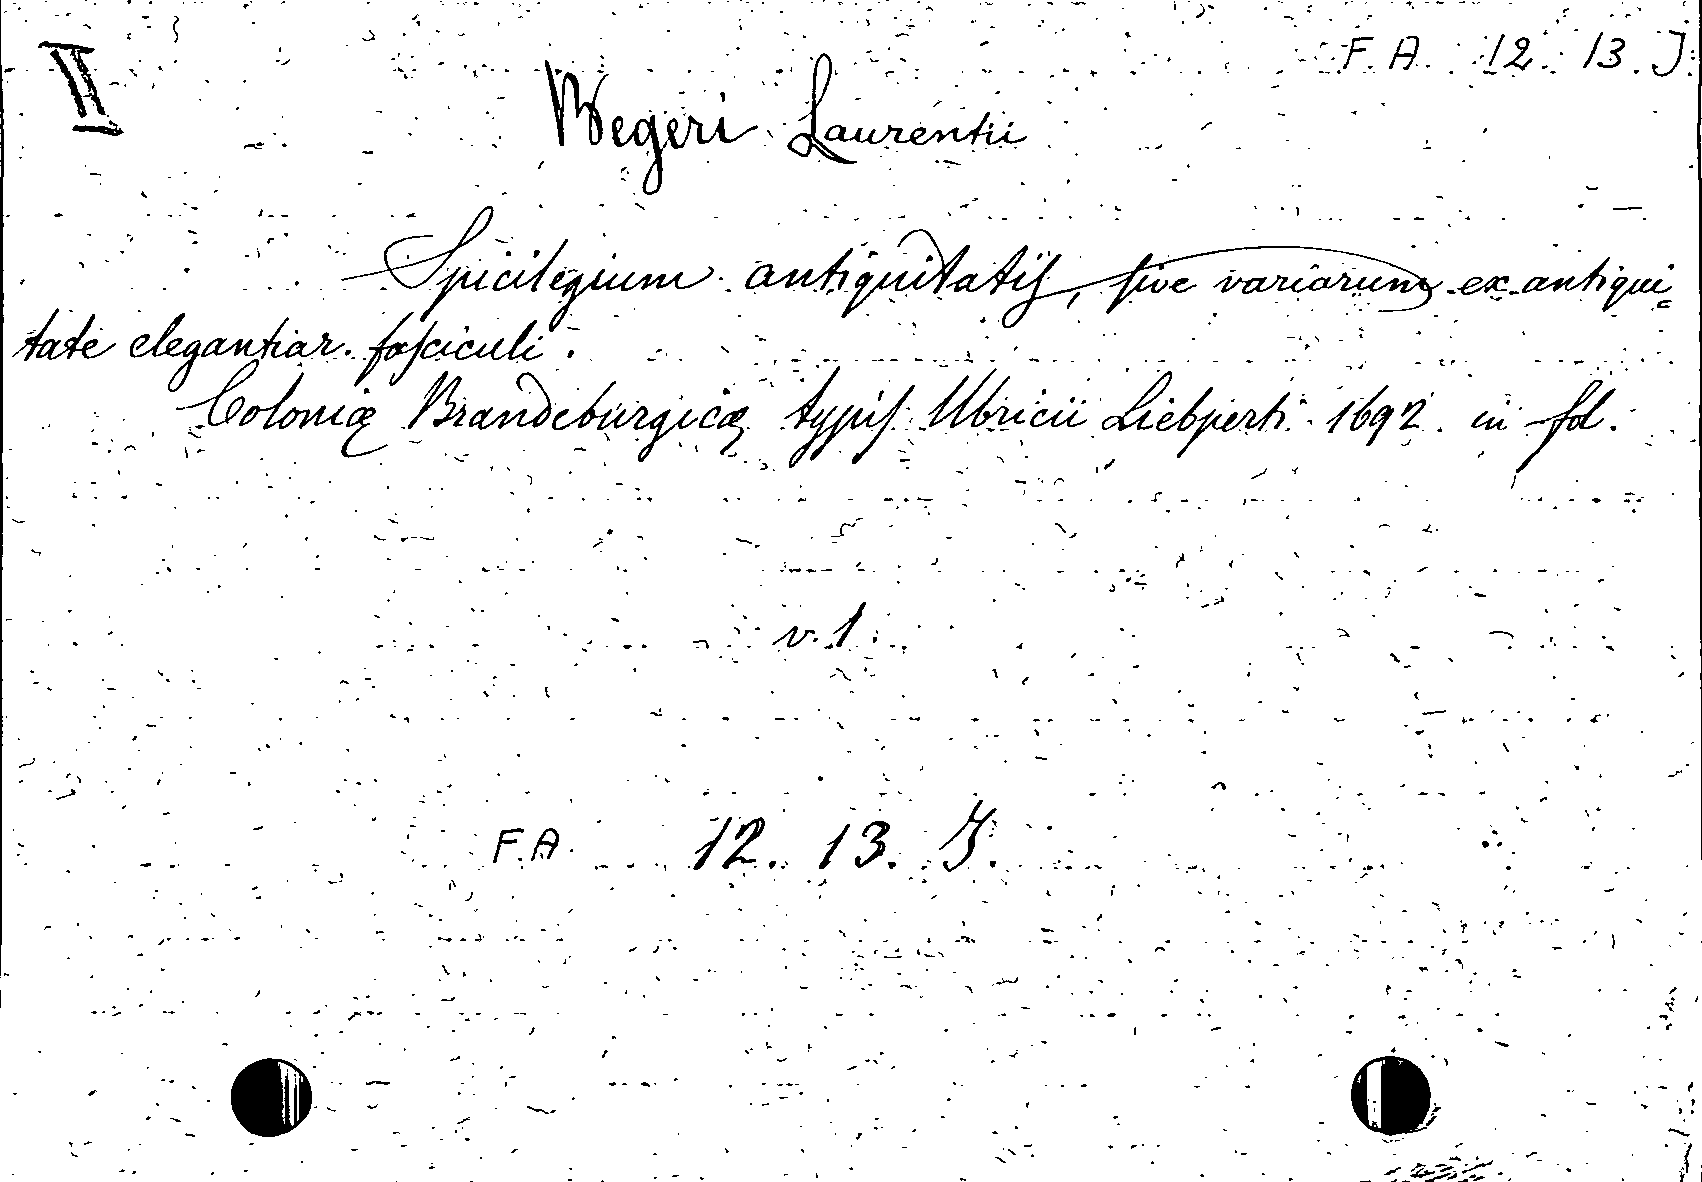 II
F. A. 12. 13. J.
Begeri Laurentii
Spicilegium antiquitatis, sive variarum ex antiqui=
tate elegantiar. fasciculi.
Coloniæ Brandeburgicæ, typis Ulricii Liebperti. 1692. in fol.
v. 1.
F. A. 12. 13. J.